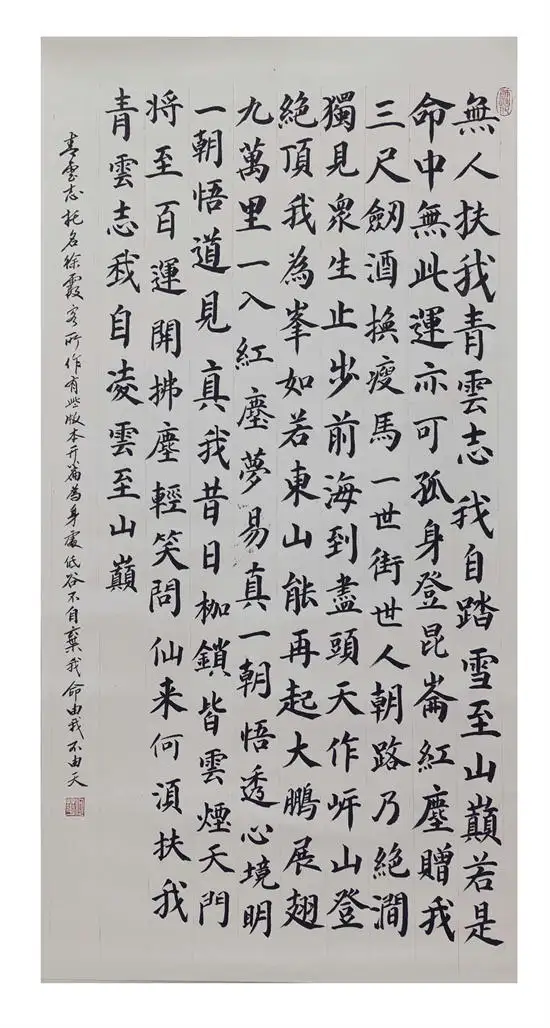 無人扶我青雲志我自踏雪至山巔若是
命中無此運亦可孤身登昆崙紅塵贈我
三尺劒酒換瘦馬一世街世人朝路乃絕澗
獨見衆生止步前海到盡頭天作岼山登
絕頂我為峯如若東山能再起大鵬展翅
九萬里一入紅塵夢易真一朝悟透心境明
一朝悟道見真我昔日枷鎖皆雲煙天門
将至百運開拂塵輕笑問仙来何湏扶我
青雲志我自凌雲至山巔
青雲志托名徐霞客所作有些版本开篇為身處低谷不自棄我命由我不由天